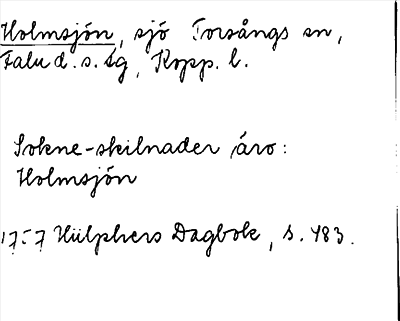 Holmsjön, sjö Torsångs sn,
Falu d. s. lg, Kopp. l.
Sokne-skilnader äro:
Holmsjön
1757 Hülphers Dagbok, s. 483.